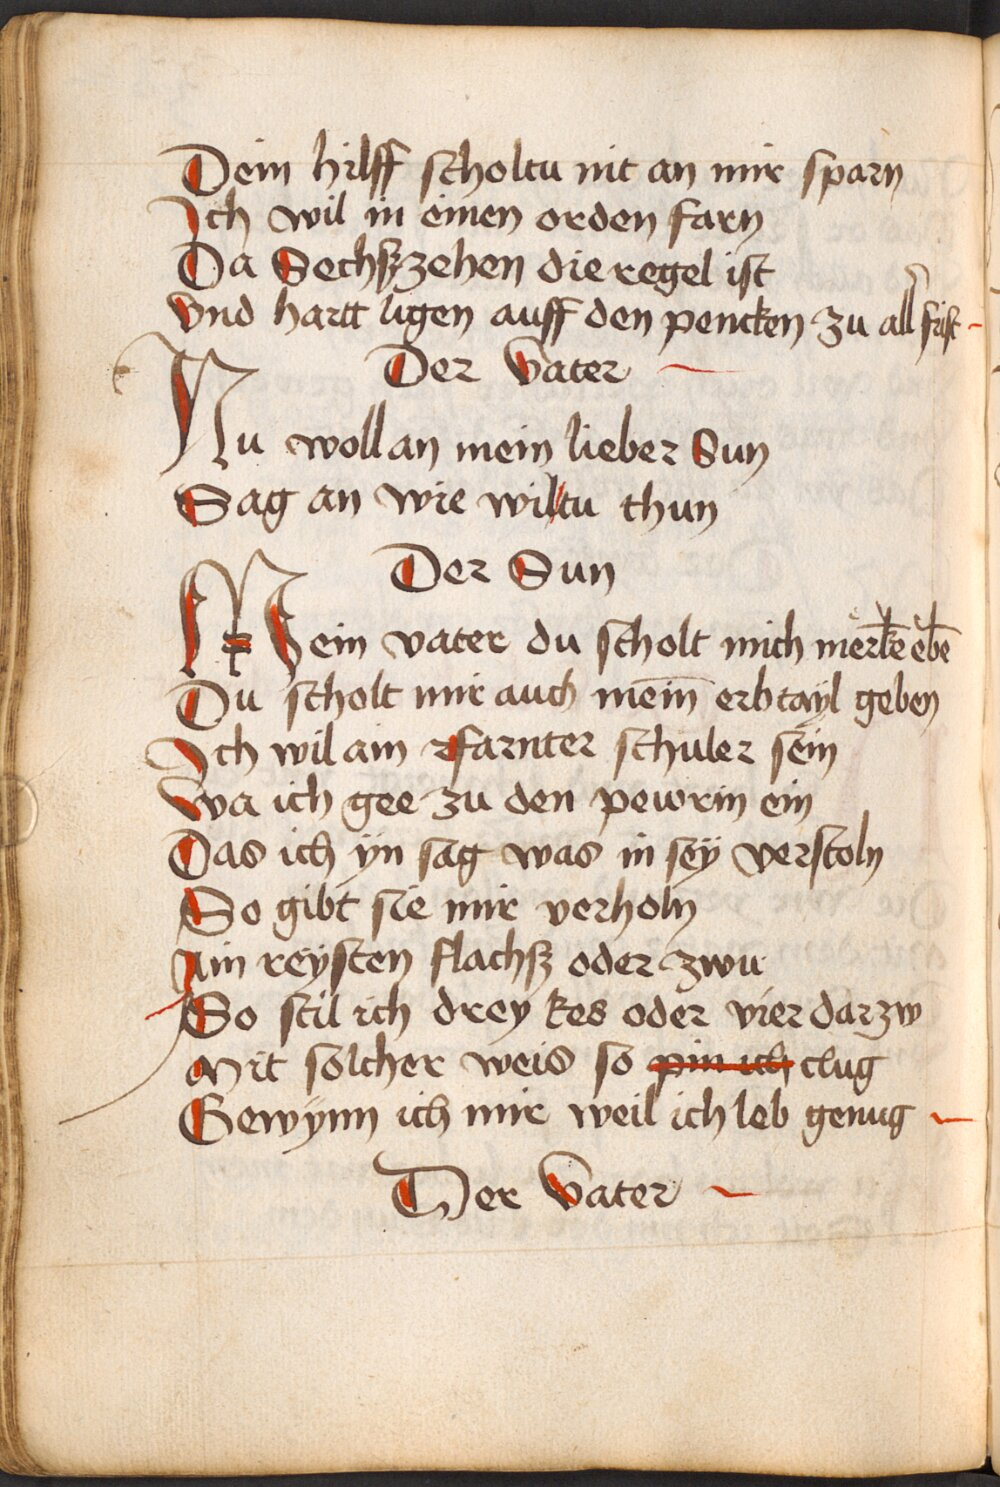 Dein hilff scholtu nit an mir sparn
Ich wil in einen orden farn
Da Sechßzehen die regel ist
Vnd hartt ligen auff den pencken zu all frist
Der Vater
Nu wollan mein lieber Sun
Sag an wie wiltu thun
Der Sun
Mein vater du scholt mich merkē ebē
Du scholt mir auch mein̄ erbtayl geben
Ich wil ain farnter schuler sein
Wa ich gee zu den pewrin ein
Das ich yn sag was in sey verstoln
So gibt sie mir verholn
Ain reysten flachß oder zwu
So stil ich drey kes oder vier darzw
Mit solcher weis so pin ich clug
Gewynn ich mir weil ich leb genug
Der Vater